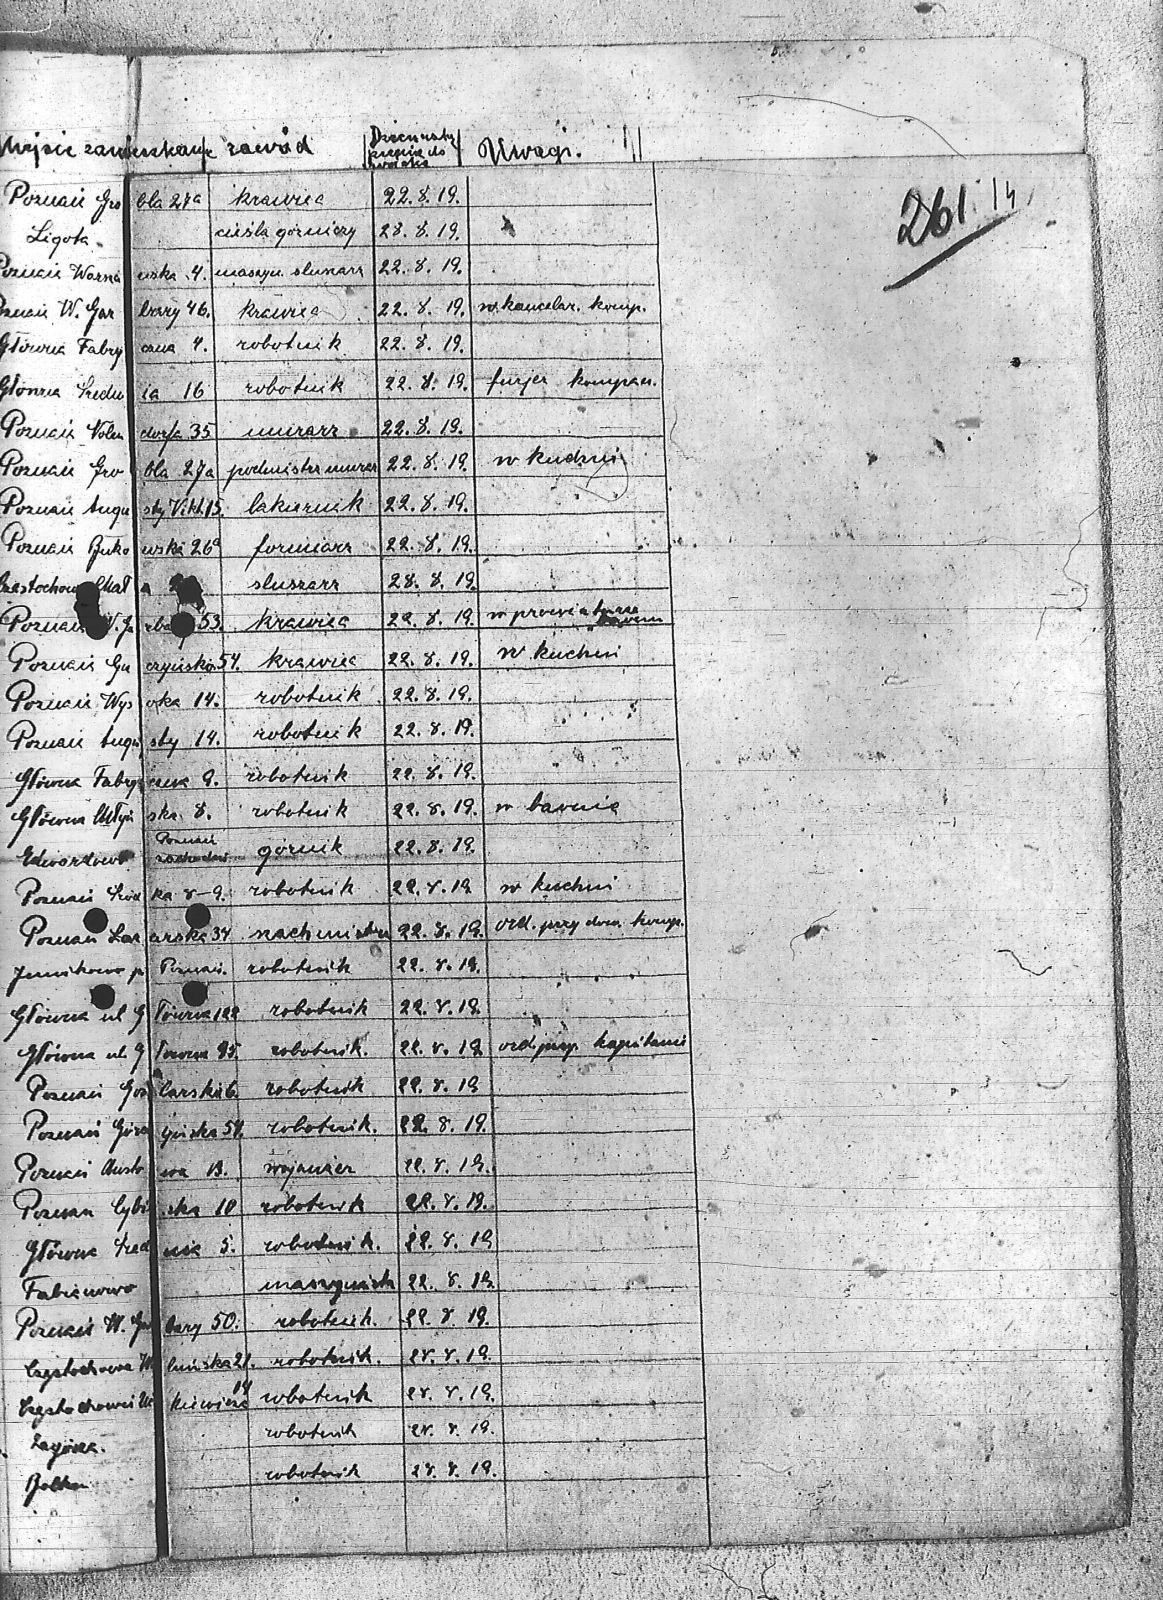 Miejsce zamieszkania zawód Dzień wstąpienia do wojska Uwagi.
261. 14
Poznań Grobla 27a krawiec 22.8.19.
Ligota. cieśla górniczy 28.8.19.
Poznań Warszawska 4. maszyn. slusarz 22.8.19.
Poznań W. Garbary 46. krawiec 22.8.19. w kancelar. komp.
Główna Fabryczna 4. robotnik 22.8.19.
Główna Średnia 16 robotnik 22.8.19. furjer kompan.
Poznań dorfa 35 murarz 22.8.19.
Poznań Grobla 27a podmistrz murar 22.8.19. w kuchni
Poznań Augusty Vikt. 15. lakiernik 22.8.19.
Poznań Bukowska 26a formiarz 22.8.19.
Częstochowa slusarz 28.8.19.
Poznań W. Ga 53. krawiec 22.8.19.
Poznań Gu czyńska 54. krawiec 22.8.19. w kuchni
Poznań Wysoka 14. robotnik 22.8.19.
Poznań Augusty 14. robotnik 22.8.19.
Główna Fabryczna 9. robotnik 22.8.19.
Główna Młyńska 8. robotnik 22.8.19.
Edwardowo Poznań zachodni górnik 22.8.19.
Poznań Śródka 8-9. robotnik 22.8.19 w kuchni
Poznań Łazarska 34 22.8.19. ord. przy dow. komp.
Junikowo p Poznań. robotnik 22.8.19.
Główna ul Główna 122 robotnik 22.8.19.
Główna ul. Główna 95. robotnik. 22.8.19 ord. przy. kapitanie
Poznań Garbarska 6. robotnik 22.8.19
Poznań 54. robotnik. 22.8.19.
Poznań wa 13. 22.8.19.
Poznań Cybińska 10 robotnik 22.8.19.
Główna Średnia 5. robotnik. 22.8.19
Fabianowo maszynista 22.8.19.
Poznań W. Garbary 50. robotnik. 22.8.19
Częstochowa 21. robotnik. 28.8.19.
Częstochowa kiewicza 14 robotnik 28.8.19.
Zagórze. robotnik 28.8.19.
robotnik 28.8.19.